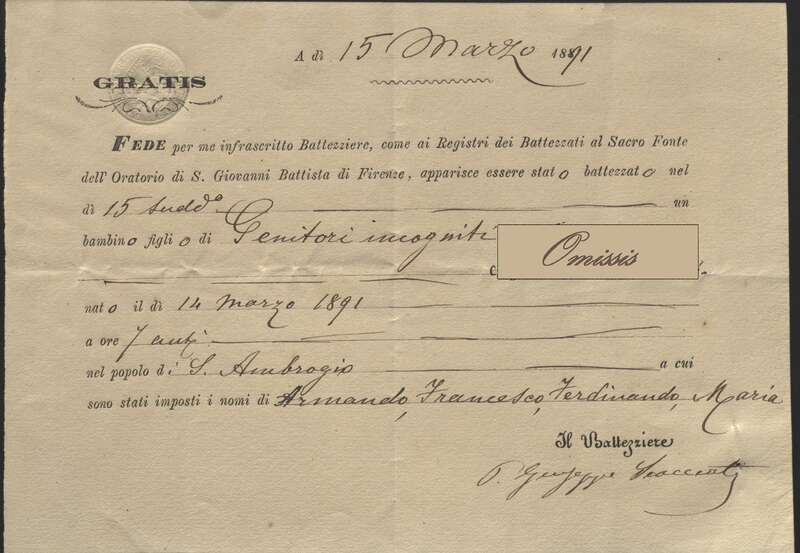 A dì 15 Marzo 1891
GRATIS
FEDE per me infrascritto Battezziere, come ai Registri dei Battezzati al Sacro Fonte
dell'Oratorio di S. Giovanni Battista di Firenze, apparisce essere stato battezzato nel
dì 15 sudd.o un
bambino figlio di Genitori incogniti
Omissis
nato il dì 14 Marzo 1891
a ore 7 ant.
nel popolo di S. Ambrogio a cui
sono stati imposti i nomi di Armando, Francesco, Ferdinando, Maria
Il Battezziere
P. Giuseppe